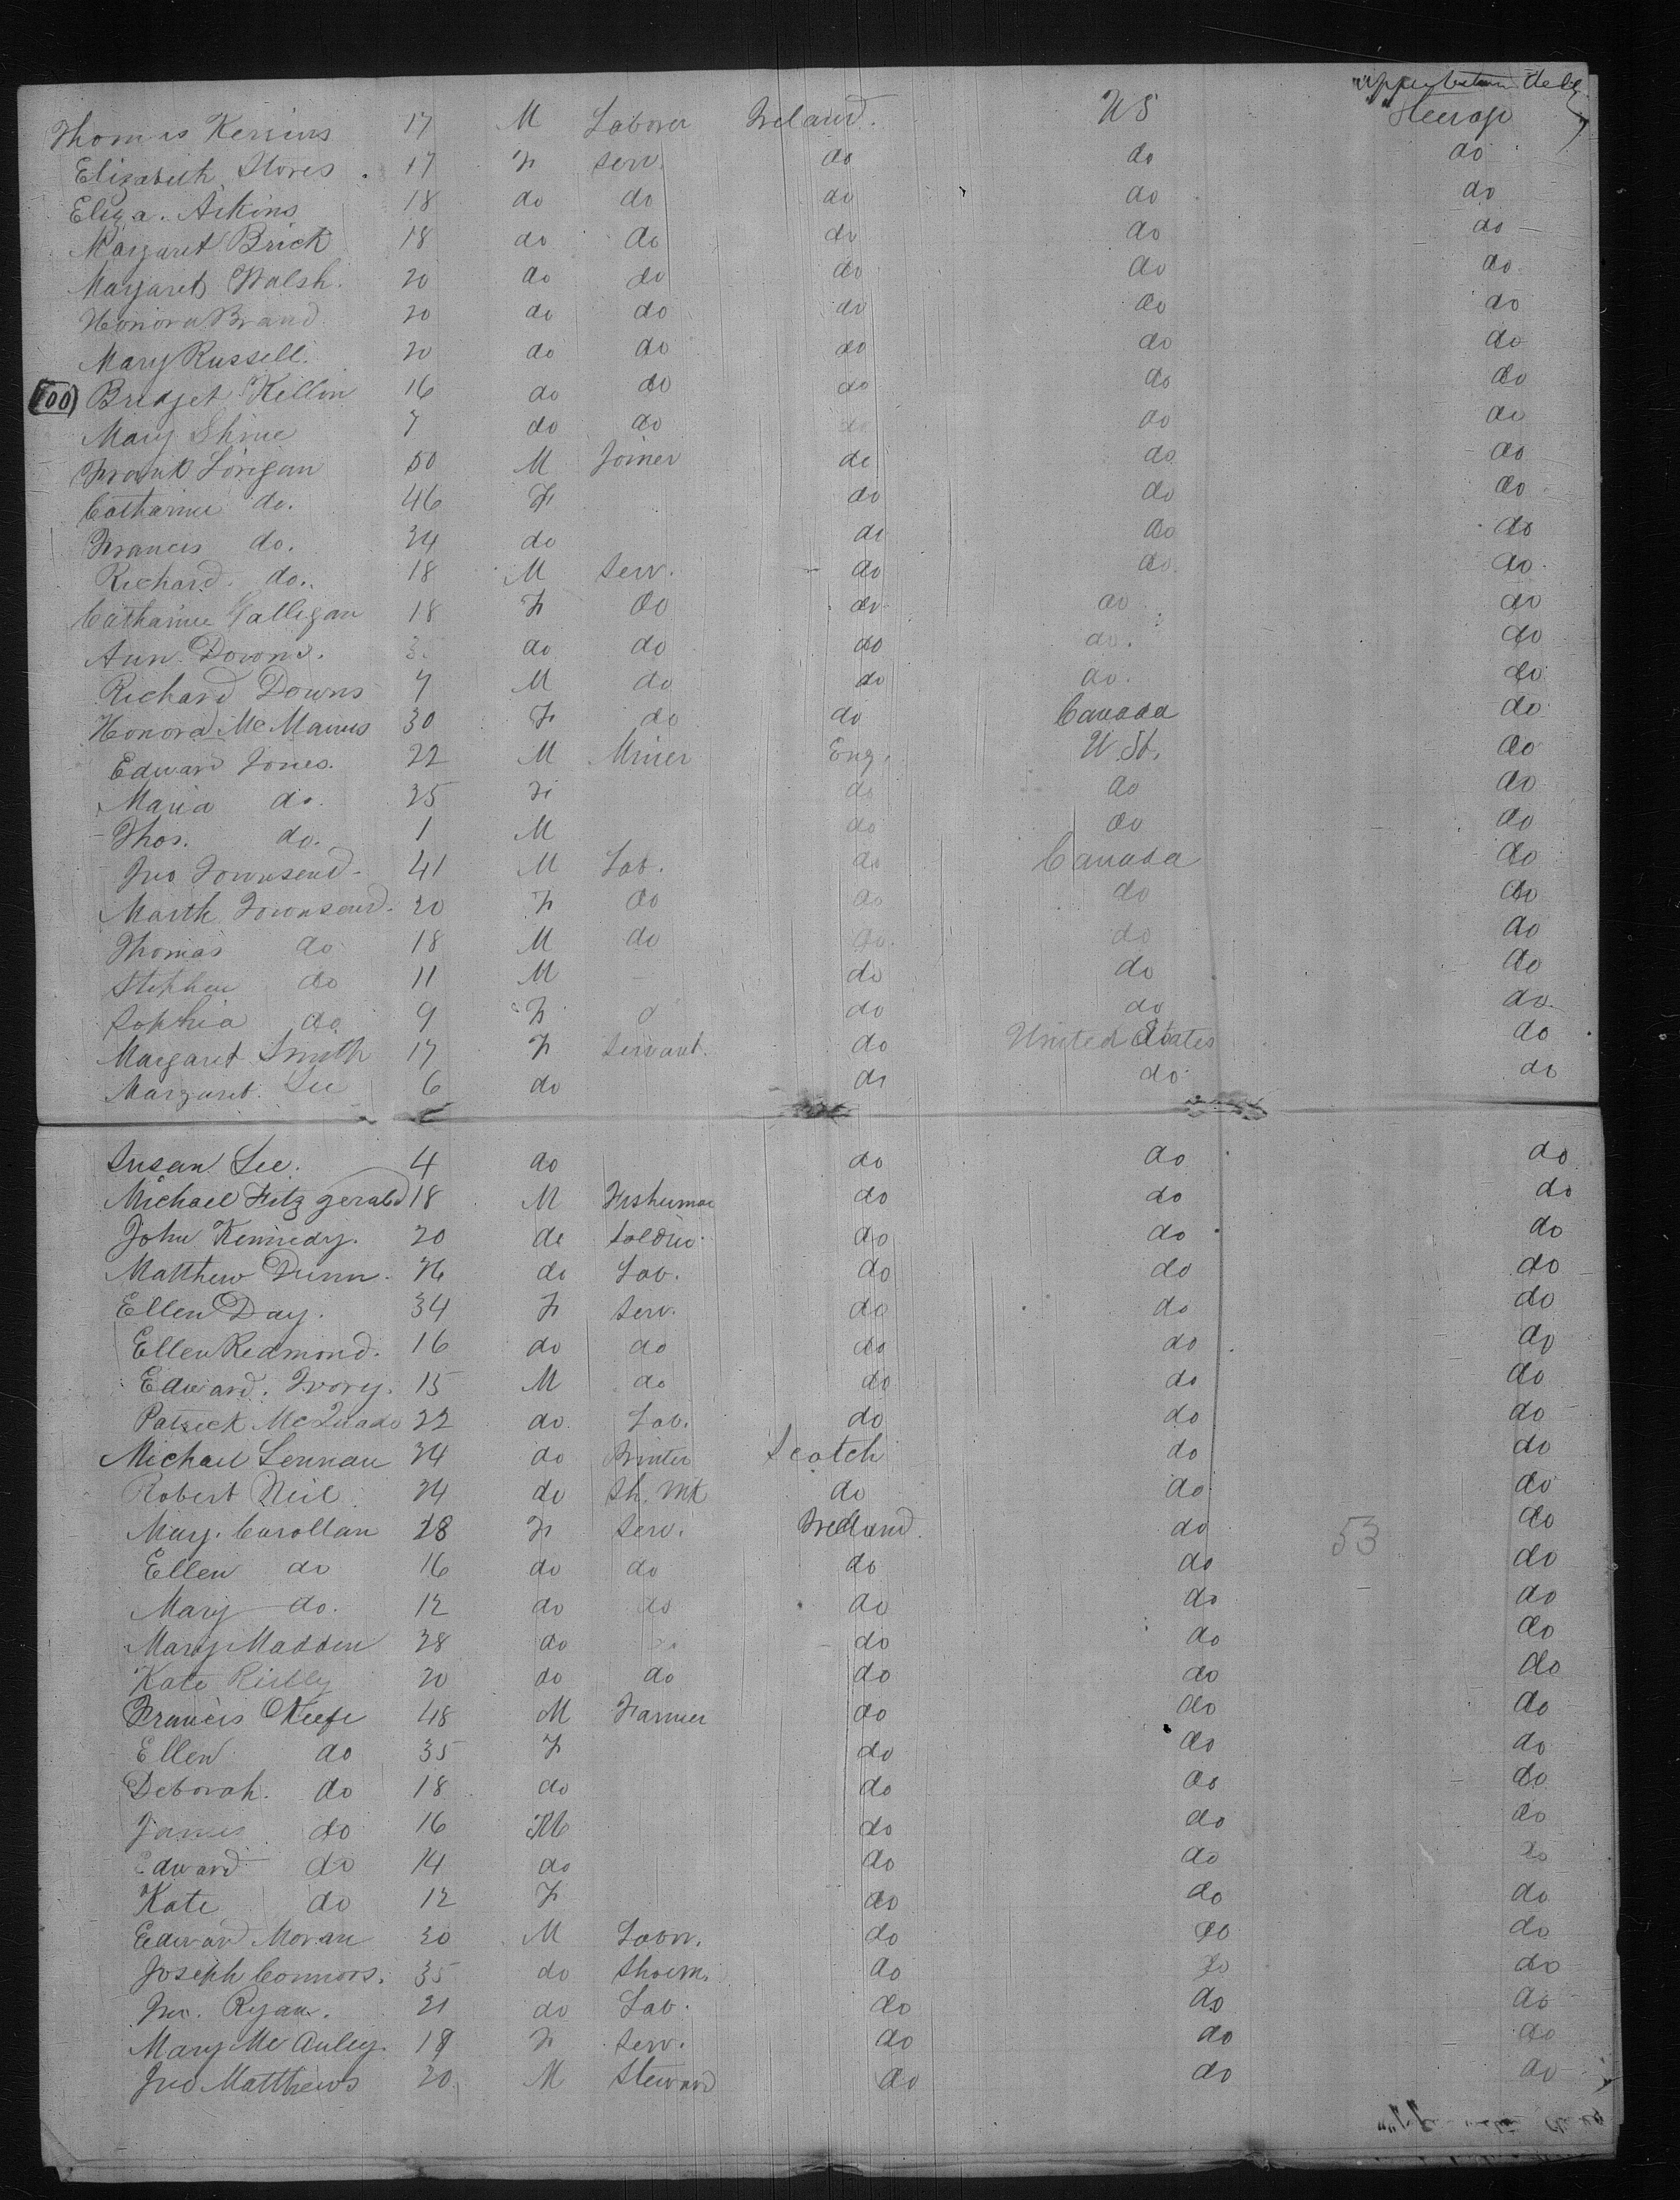 Thomas Kerrins 17 M Laborer Ireland. US
Elizabeth Stores. 17 F Serv. do do do
Eliza. Aikins 18 do do do do do
Margaret Brick 18 do do do do do
Margaret Walsh. 20 do do do do do
Honora Brand 20 do do do do do
Mary Russell. 20 do do do do do
(100) Bridget Kellin 16 do do do do do
Mary Shine 7 do do do do do
Frank Lorigan 50 M Joiner do do do
Catharine do. 46 F do do do
Francis do. 24 do do do do
Richard do. 18 M Serv. do do. do.
Catharine Galligan 18 F do do do do
Ann Downs. do do do do. do
Richard Downs 7 M do do do. do
Honora McManus 30 F do do Canada do
Edward Jones. 22 M Miner Eng. U. St. do
Maria do. 25 F do do do
Thos. do. 1 M do do do
Jno Townsend 41 M Lab. do Canada do
Marth Townsend. 20 F do do do do
Thomas do 18 M do do. do do
Stephen do 11 M do do do
Sophia do 9 F do do do.
Margaret Smith 17 F Servant. do United States do
Margaret Lee 6 do do do do
Susan Lee. 4 do do do do
Michael Fitzgerald 18 M Fisherman do do do
John Kennedy. 20 do Soldier do do do
Matthew Dunn. 26 do Lab. do do do
Ellen Day. 34 F Serv. do do do
Ellen Redmond. 16 do do do do do
Edward. Ivory. 15 M do do do do
Patrick McQuade 22 do Lab. do do do
Michael Lennan 24 do Printer Scotch do do
Robert Neil 24 do Sh. Mk do do do
Mary. Carollan 28 F Serv. Ireland. do do
53
Ellen do 16 do do do do do
Mary do. 12 do do do do do
Mary Madden 28 do do do do do
Kate Rielly 20 do do do do do
Francis OKeefe 48 M Farmer do do do
Ellen do 35 F do do do
Deborah. do 18 do do do do
James do 16 M do do do
Edward do 14 do do do do
Kate do 12 F do do do
Edward Moran 30 M Labr. do do do
Joseph Connors. 35 do Shoem. do do do
Jno. Ryan. 21 do Lab. do do do
Mary McAuley. 18 F Serv. do do do
Jno Matthews 20 M Steward do do do